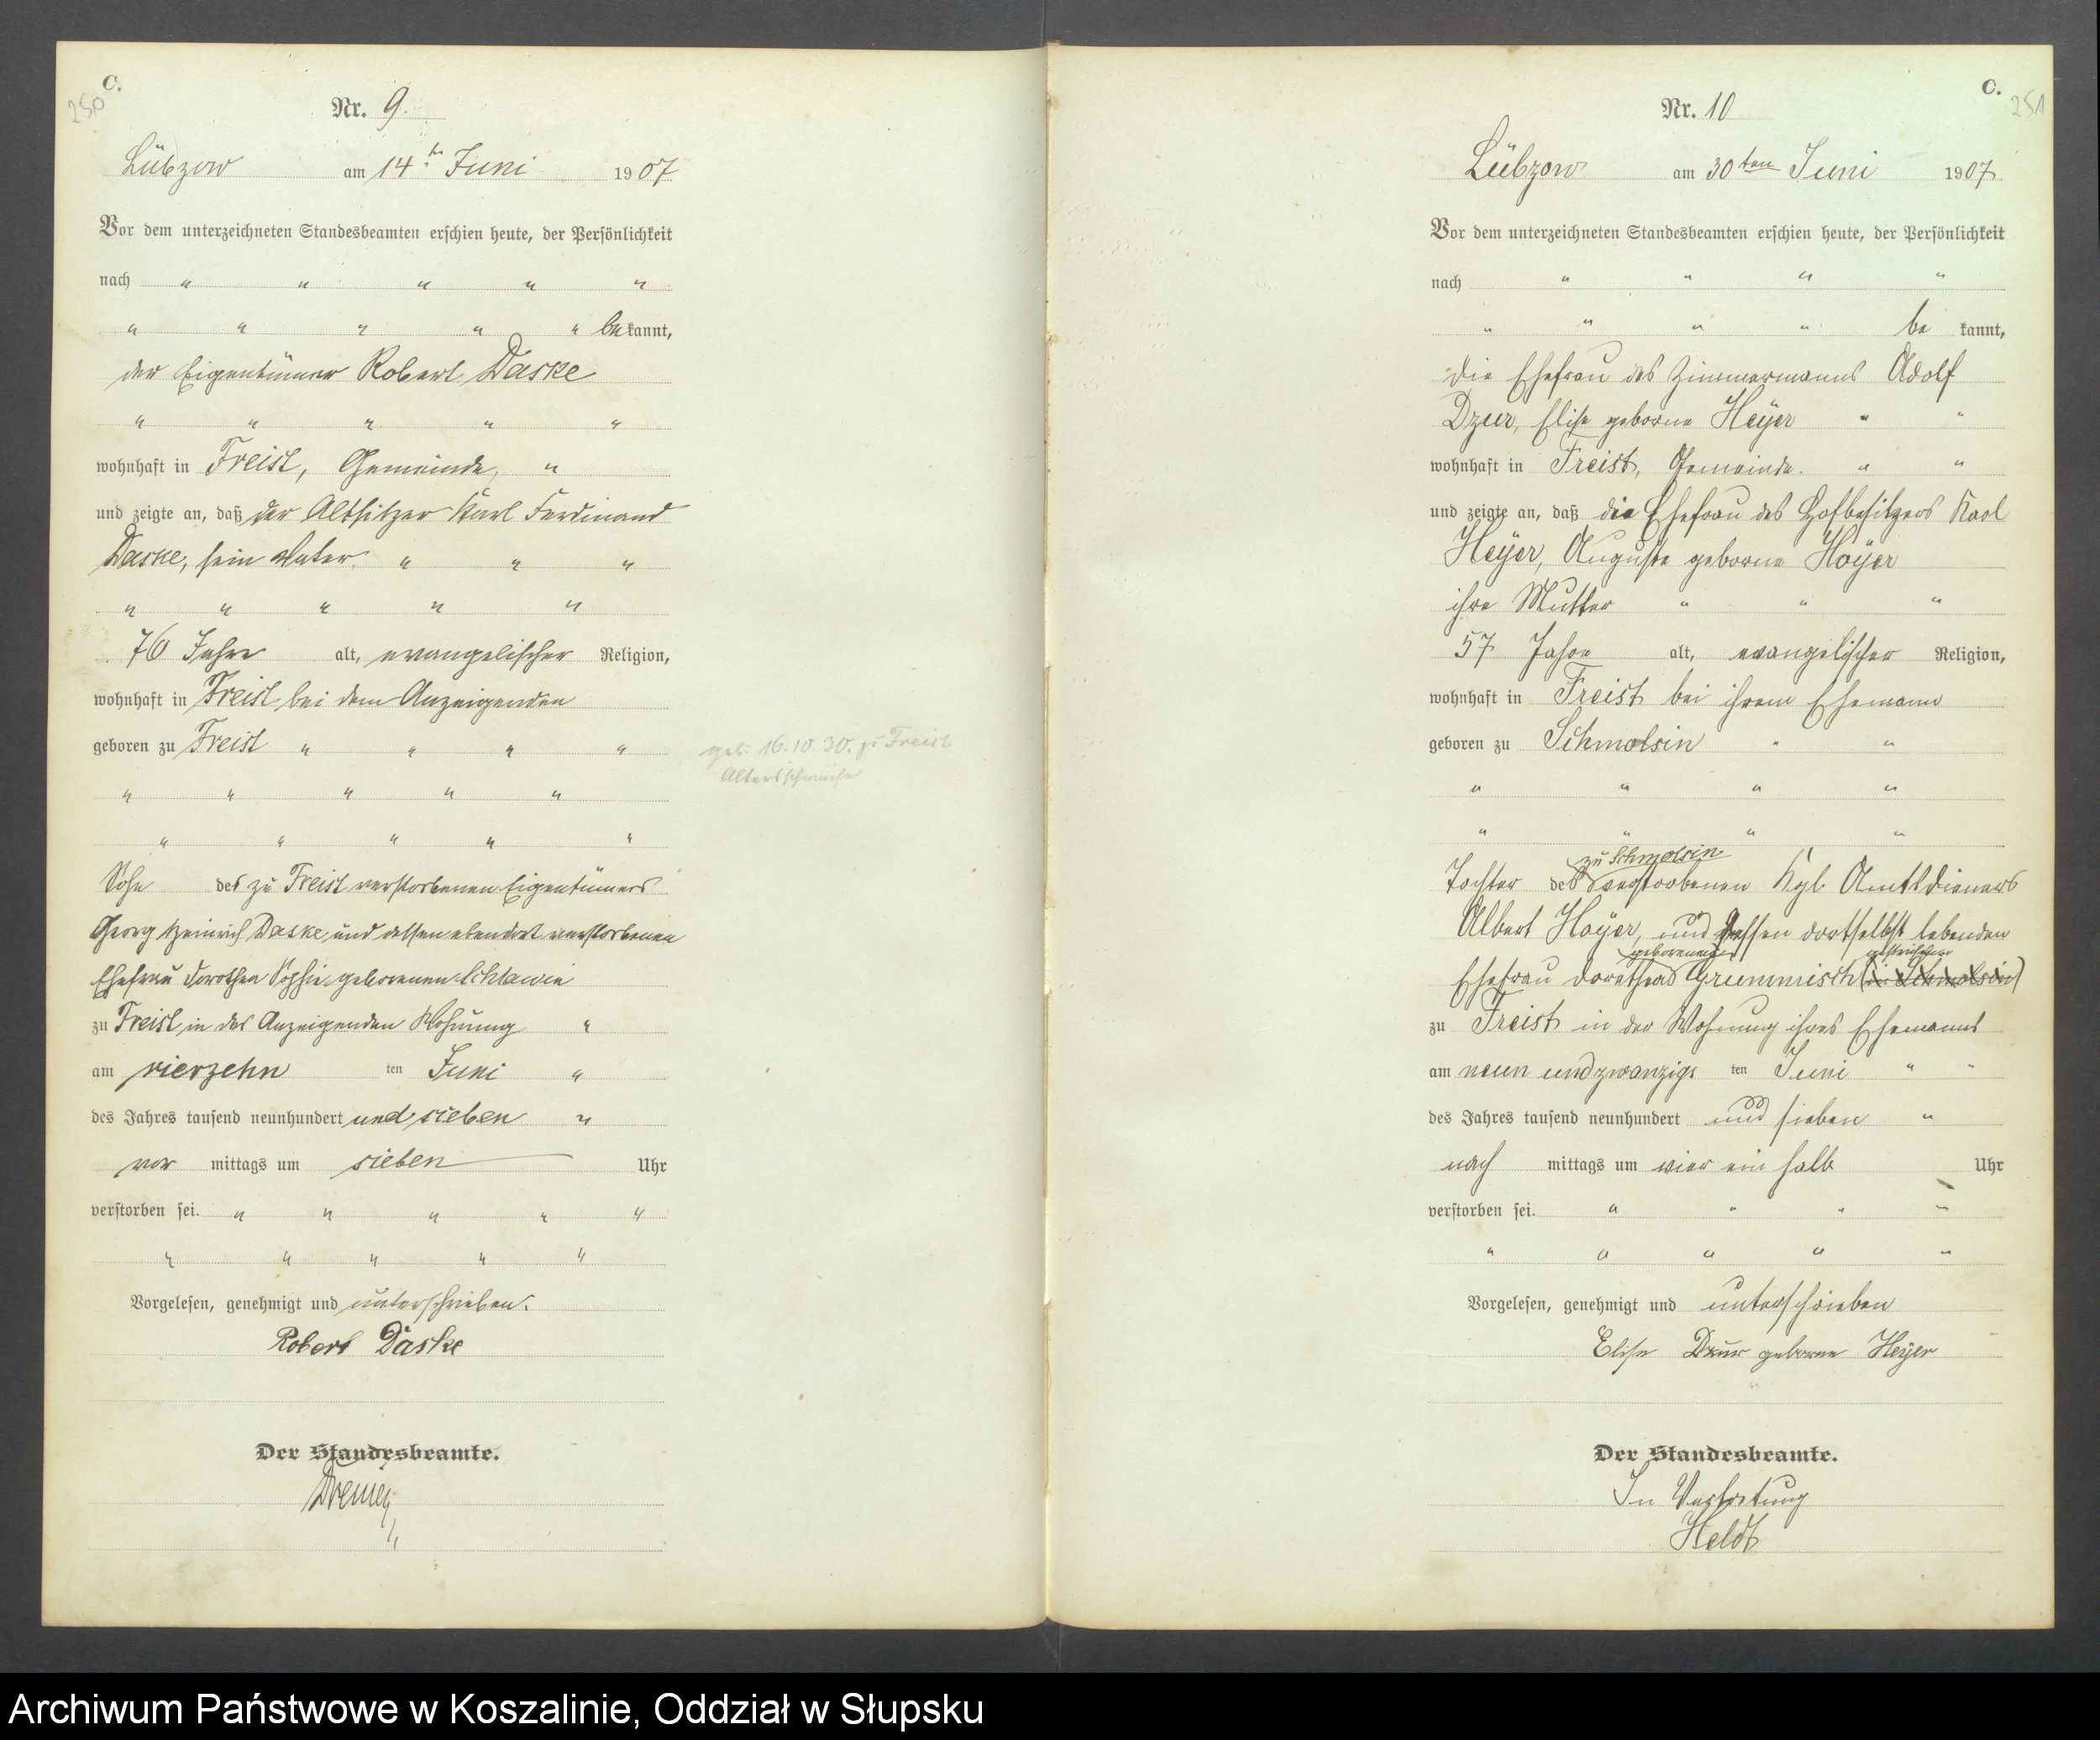 C.
250
Nr. 9.
Lübzow am 14ten Juni 1907
Vor dem unterzeichneten Standesbeamten erschien heute, der Persönlichkeit
nach " " " " "
" " " " " bekannt,
der Eigentümer Robert Daske
" " " " "
wohnhaft in Freist, Gemeinde, "
und zeigte an, daß der Altsitzer Karl Ferdinand
Daske, sein Vater, " " "
" " " " "
76 Jahre alt, evangelischer Religion,
wohnhaft in Freist bei dem Anzeigenden
geboren zu Freist " " " "
" " " " "
" " " " "
Sohn des zu Freist verstorbenen Eigentümers
Georg Heinrich Daske, und dessen ebendort verstorbenen
Ehefrau Dorothea Sophie geborenen Schlawin
zu Freist, in des Anzeigenden Wohnung "
am vierzehn ten Juni "
des Jahres tausend neunhundert und sieben "
vor mittags um sieben Uhr
verstorben sei. " " " " "
" " " " "
Vorgelesen, genehmigt und unterschrieben.
Robert Daske
Der Standesbeamte.
geb: 16.10.30. zu Freist
Altersschwäche
C.
251
Nr. 10
Lübzow am 30ten Juni 1907
Vor dem unterzeichneten Standesbeamten erschien heute, der Persönlichkeit
nach " " " "
" " " " be kannt,
die Ehefrau des Zimmermanns Adolf
Dzur, Elise geborne Heyer " "
wohnhaft in Freist, Gemeinde. " "
und zeigte an, daß die Ehefrau des Hofbesitzers Karl
Heyer, Auguste geborne Hoyer
ihre Mutter " " "
57 Jahre alt, evangelischer Religion,
wohnhaft in Freist bei ihrem Ehemann
geboren zu Schmolsin " "
" " " "
" " " "
zu Schmolsin
Tochter des verstorbenen Kgl. Amtsdieners
Albert Hoyer, und dessen dortselbst lebenden
geborenen gestrichen
Ehefrau Dorothea Grummisch (in Schmolsin)
zu Freist in der Wohnung ihres Ehemanns
am neun und zwanzigs ten Juni " "
des Jahres tausend neunhundert und sieben "
nach mittags um vier ein halb Uhr
verstorben sei. " " " "
" " " " "
Vorgelesen, genehmigt und unterschrieben
Elise Dzur geborne Heyer
Der Standesbeamte.
In Vertretung
Heldt
Archiwum Państwowe w Koszalinie, Oddział w Słupsku